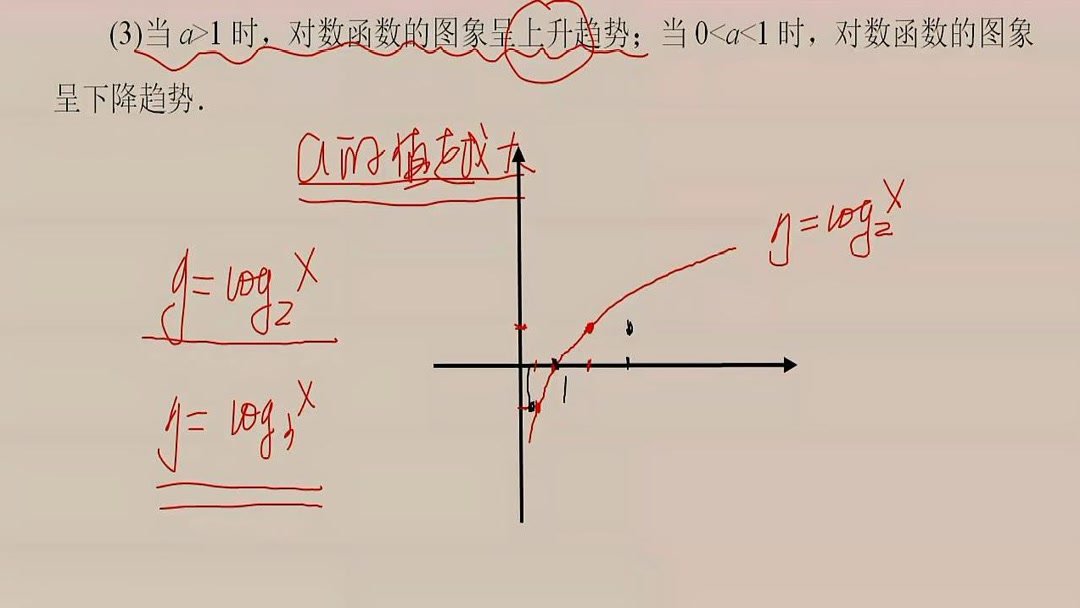 (3)当 a>1 时，对数函数的图象呈上升趋势；当 0<a<1 时，对数函数的图象
呈下降趋势．
a的值越大
y=log₂x
y=log₂x
y=log₃x
1